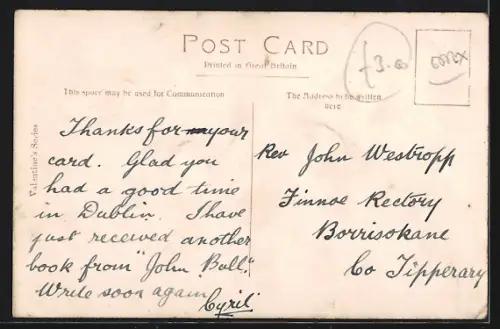 POST CARD
Printed in Great Britain
This space may be used for Communication
The Address to be written
here
Valentine's Series
£3.00
Thanks for my your
card. Glad you
had a good time
in Dublin. I have
just received another
book from "John Bull".
Write soon again
Cyril
Rev John Westropp
Finnoe Rectory
Borrisokane
Co Tipperary